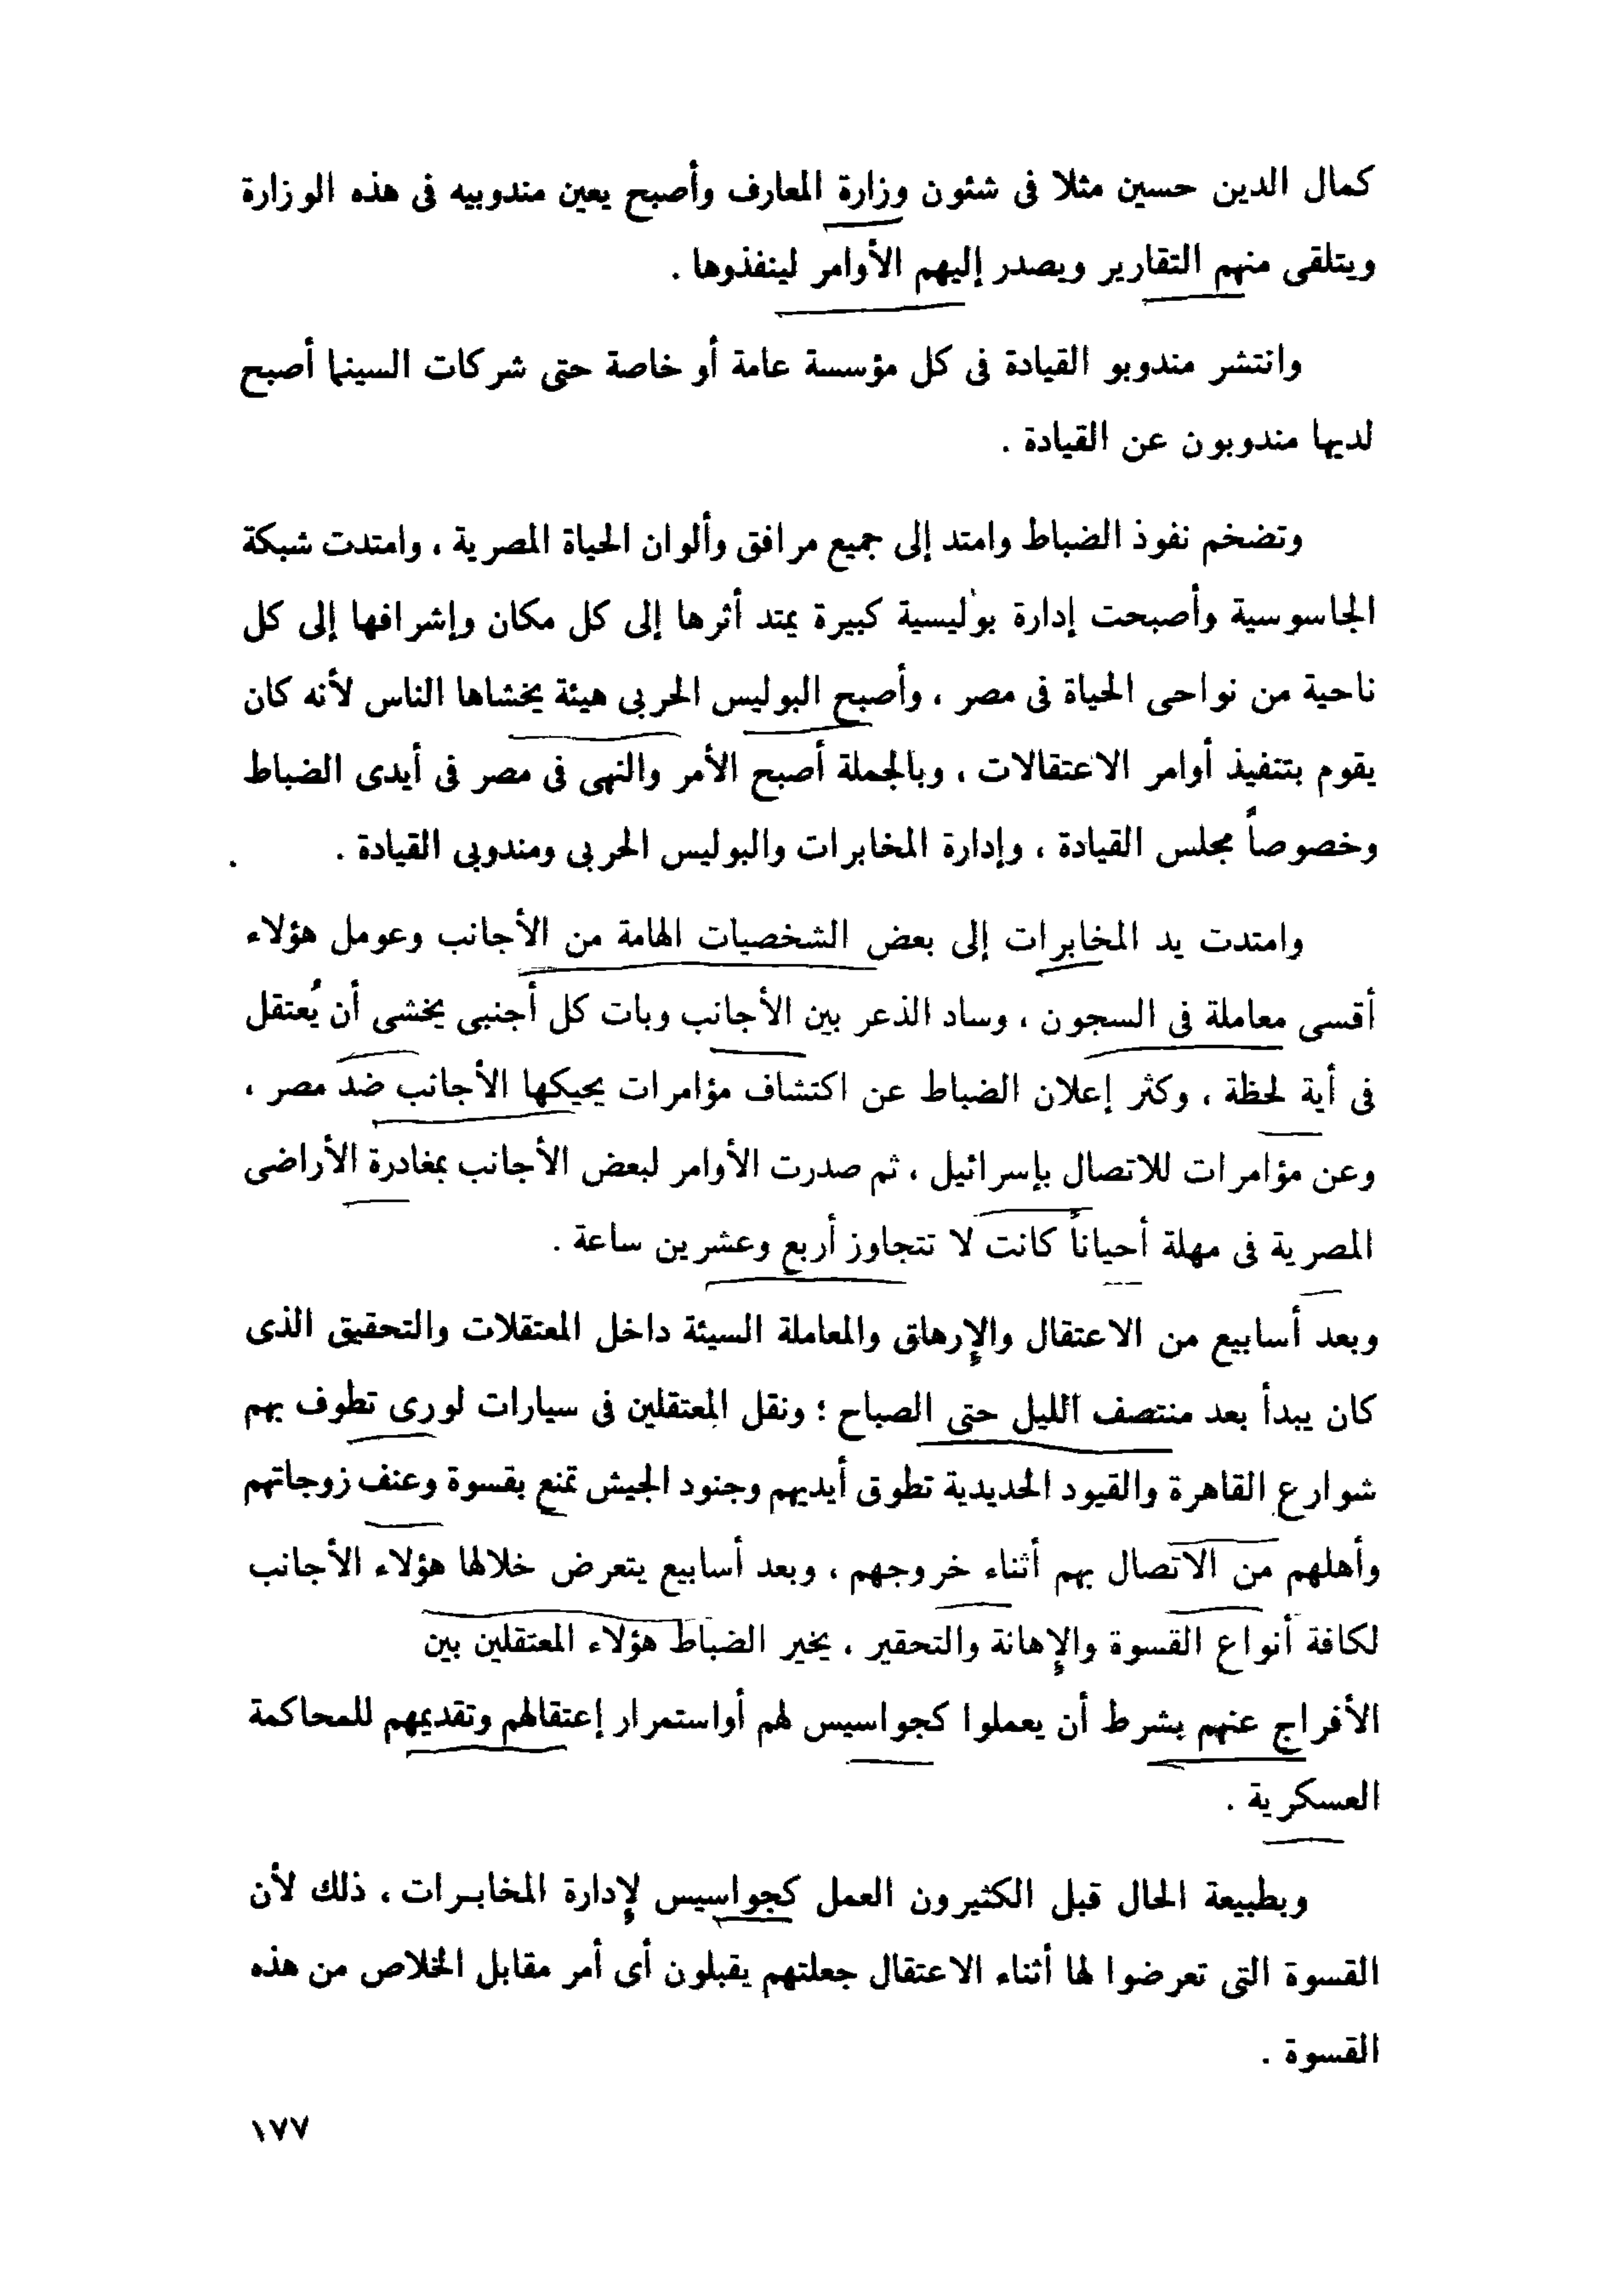 كمال الدين حسين مثلا فى شئون وزارة المعارف وأصبح يعين مندوبيه فى هذه الوزارة
ويتلقى منهم التقارير ويصدر إليهم الأوامر لينفذوها .
وانتشر مندوبو القيادة فى كل مؤسسة عامة أو خاصة حتى شركات السينما أصبح
لديها مندوبون عن القيادة .
وتضخم نفوذ الضباط وامتد إلى جميع مرافق وألوان الحياة المصرية ، وامتدت شبكة
الجاسوسية وأصبحت إدارة بوليسية كبيرة يمتد أثرها إلى كل مكان وإشرافها إلى كل
ناحية من نواحى الحياة فى مصر ، وأصبح البوليس الحربى هيئة يخشاها الناس لأنه كان
يقوم بتنفيذ أوامر الاعتقالات ، وبالجملة أصبح الأمر والنهى فى مصر فى أيدى الضباط
وخصوصاً مجلس القيادة ، وإدارة المخابرات والبوليس الحربى ومندوبى القيادة .
وامتدت يد المخابرات إلى بعض الشخصيات الهامة من الأجانب وعومل هؤلاء
أقسى معاملة فى السجون ، وساد الذعر بين الأجانب وبات كل أجنبى يخشى أن يُعتقل
فى أية لحظة ، وكثر إعلان الضباط عن اكتشاف مؤامرات يحيكها الأجانب ضد مصر ،
وعن مؤامرات للاتصال بإسرائيل ، ثم صدرت الأوامر لبعض الأجانب بمغادرة الأراضى
المصرية فى مهلة أحياناً كانت لا تتجاوز أربع وعشرين ساعة .
وبعد أسابيع من الاعتقال والإرهاق والمعاملة السيئة داخل المعتقلات والتحقيق الذى
كان يبدأ بعد منتصف الليل حتى الصباح ؛ ونقل المعتقلين فى سيارات لورى تطوف بهم
شوارع القاهرة والقيود الحديدية تطوق أيديهم وجنود الجيش تمنع بقسوة وعنف زوجاتهم
وأهلهم من الاتصال بهم أثناء خروجهم ، وبعد أسابيع يتعرض خلالها هؤلاء الأجانب
لكافة أنواع القسوة والإهانة والتحقير ، يخير الضباط هؤلاء المعتقلين بين
الأفراج عنهم بشرط أن يعملوا كجواسيس لهم أواستمرار إعتقالهم وتقديمهم للمحاكمة
العسكرية .
وبطبيعة الحال قبل الكثيرون العمل كجواسيس لإدارة المخابرات ، ذلك لأن
القسوة التى تعرضوا لها أثناء الاعتقال جعلتهم يقبلون أى أمر مقابل الخلاص من هذه
القسوة .
١٧٧